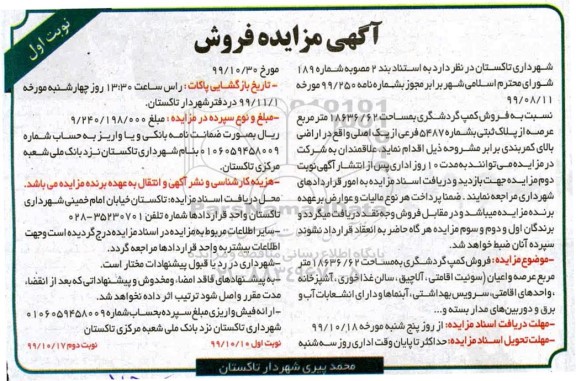 نوبت اول
آگهی مزایده فروش
شهرداری تاکستان در نظر دارد به استناد بند ۲ مصوبه شماره ۱۸۹
شورای محترم اسلامی شهر برابر مجوز بشماره نامه ۹۹/۲۵۰ مورخه
۹۹/۰۸/۱۱
نسبت به فروش کمپ گردشگری بمساحت ۱۸۶۳۶/۶۲ متر مربع
عرصه از پلاک ثبتی بشماره ۵۴۸۷ فرعی از یک اصلی واقع در اراضی
بالای کمربندی برابر مشروحه ذیل اقدام نماید. علاقمندان به شرکت
در مزایده می توانند به مدت ۱۰ روز اداری پس از انتشار آگهی نوبت
دوم مزایده جهت بازدید و دریافت اسناد مزایده به امور قراردادهای
شهرداری مراجعه نمایند. ضمنا پرداخت هر نوع مالیات و عوارض بر عهده
برنده مزایده میباشد و در مقابل فروش وجه نقد دریافت میگردد و
برندگان اول و دوم و سوم مزایده هر گاه حاضر به انعقاد قرارداد نشوند
سپرده آنان ضبط خواهد شد.
-موضوع مزایده: فروش کمپ گردشگری به مساحت ۱۸۶۳۶/۶۲ متر
مربع عرصه و اعیان (سوئیت اقامتی، آلاچیق، سالن غذاخوری، آشپزخانه
، واحدهای اقامتی، سرویس بهداشتی، آبنماها و دارای انشعابات آب و
برق و دوربین های مدار بسته و...
-مهلت دریافت اسناد مزایده: از روز پنج شنبه مورخه ۹۹/۱۰/۱۸
-مهلت تحویل اسناد مزایده: حداکثر تا پایان وقت اداری روز سه شنبه
مورخ ۹۹/۱۰/۳۰
- تاریخ بازگشایی پاکات: راس ساعت ۱۳:۳۰ روز چهارشنبه مورخه
۹۹/۱۱/۱ در دفتر شهردار تاکستان.
-مبلغ و نوع سپرده در مزایده: مبلغ ۹/۲۴۰/۱۹۸/۰۰۰
ریال بصورت ضمانت نامه بانکی و یا واریز به حساب شماره
۰۱۰۶۰۵۹۴۵۸۰۰۹ بنام شهرداری تاکستان نزد بانک ملی شعبه
مرکزی تاکستان.
-هزینه کارشناسی و نشر آگهی و انتقال به عهده برنده مزایده می باشد.
محل دریافت اسناد مزایده: تاکستان خیابان امام خمینی شهرداری
تاکستان واحد قراردادها شماره تلفن ۳۵۲۳۰۷۰۱-۰۲۸
-سایر اطلاعات مربوط به مزایده در اسناد مزایده درج گردیده است وجهت
اطلاعات بیشتر به واحد قراردادها مراجعه گردد.
-شهرداری در رد یا قبول پیشنهادات مختار است.
-به پیشنهادهای فاقد امضا، ومخدوش و پیشنهاداتی که بعد از انقضا،
مدت مقرر واصل شود ترتیب اثر داده نخواهد شد.
-ارائه فیش واریزی مبلغ سپرده به حساب شماره ۰۱۰۶۰۵۹۴۵۸۰۰۹
شهرداری تاکستان نزد بانک ملی شعبه مرکزی تاکستان
نوبت اول ۹۹/۱۰/۱۰ نوبت دوم ۹۹/۱۰/۱۷
محمد پیری شهردار تاکستان